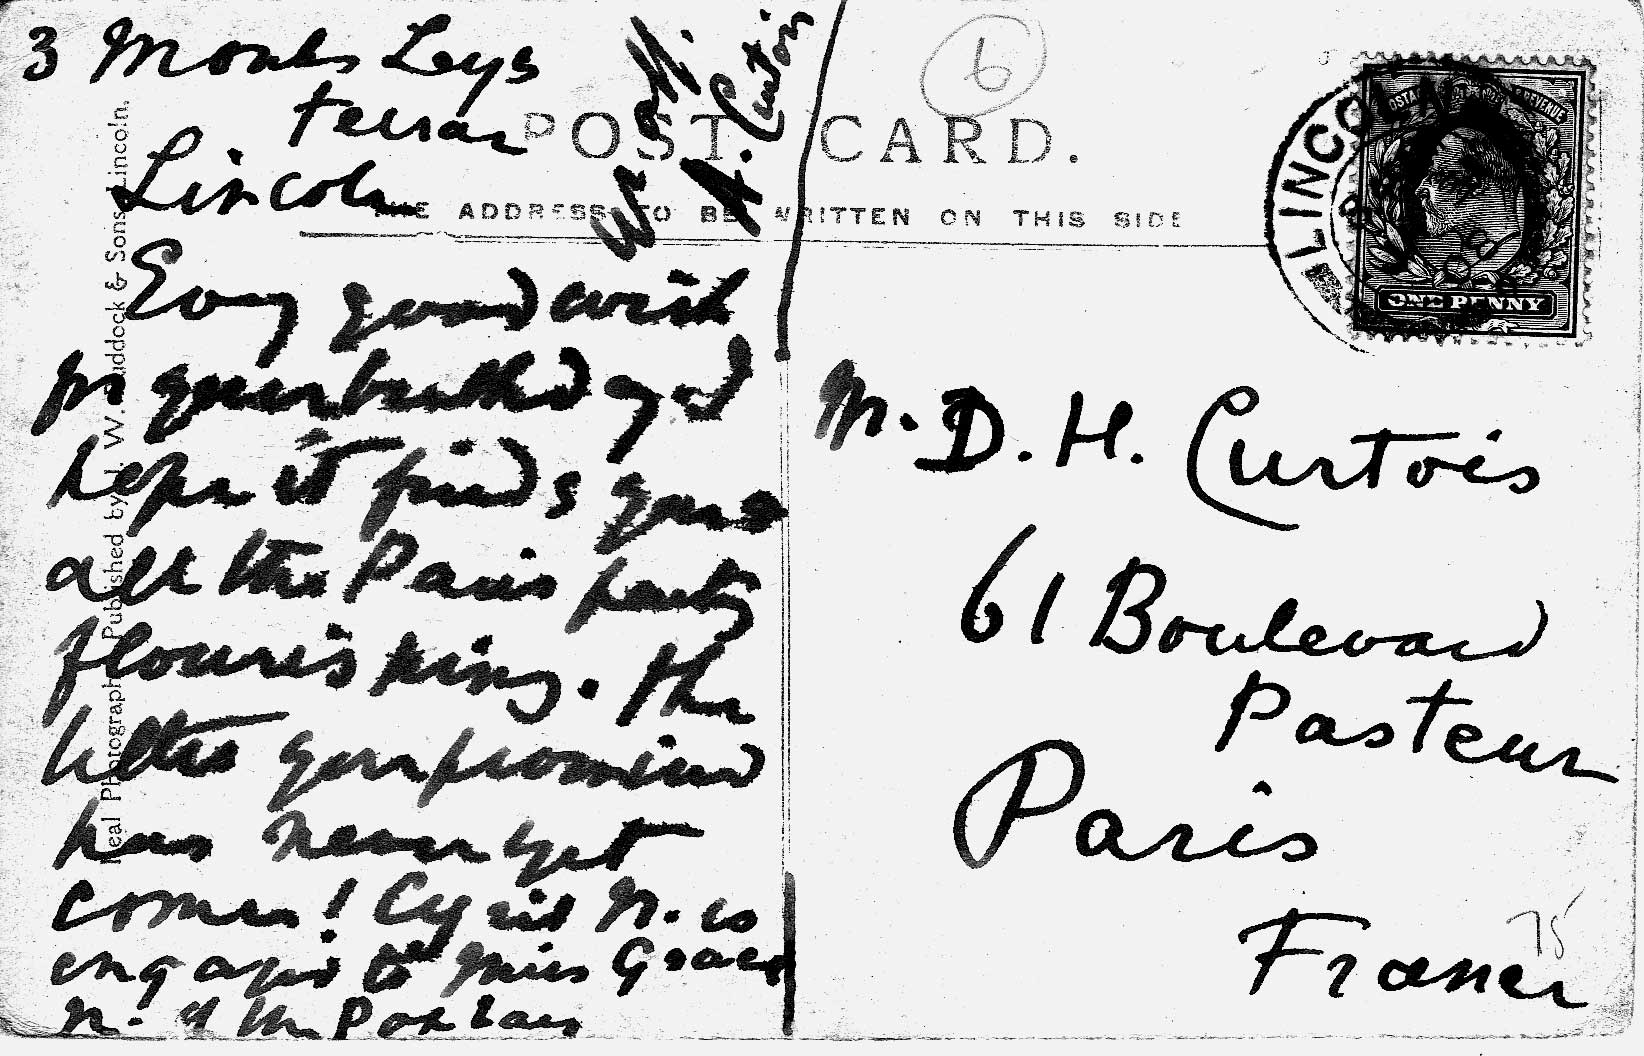 3 Monks Leys
terrace
Lincoln
A. Curtois
POST CARD.
THE ADDRESS TO BE WRITTEN ON THIS SIDE
Every good wish
for your birthday and
hope it finds you &
all the Paris party
flourishing. The
letter you promised
has never yet
come! Cyril N. is
engaged to Miss Grace
N. of the
Real Photograph Published by J. W. Ruddock & Sons Lincoln.
6
LINCOLN
POSTAGE & REVENUE
ONE PENNY
M. D. H. Curtois
61 Boulevard
Pasteur
Paris
France
75